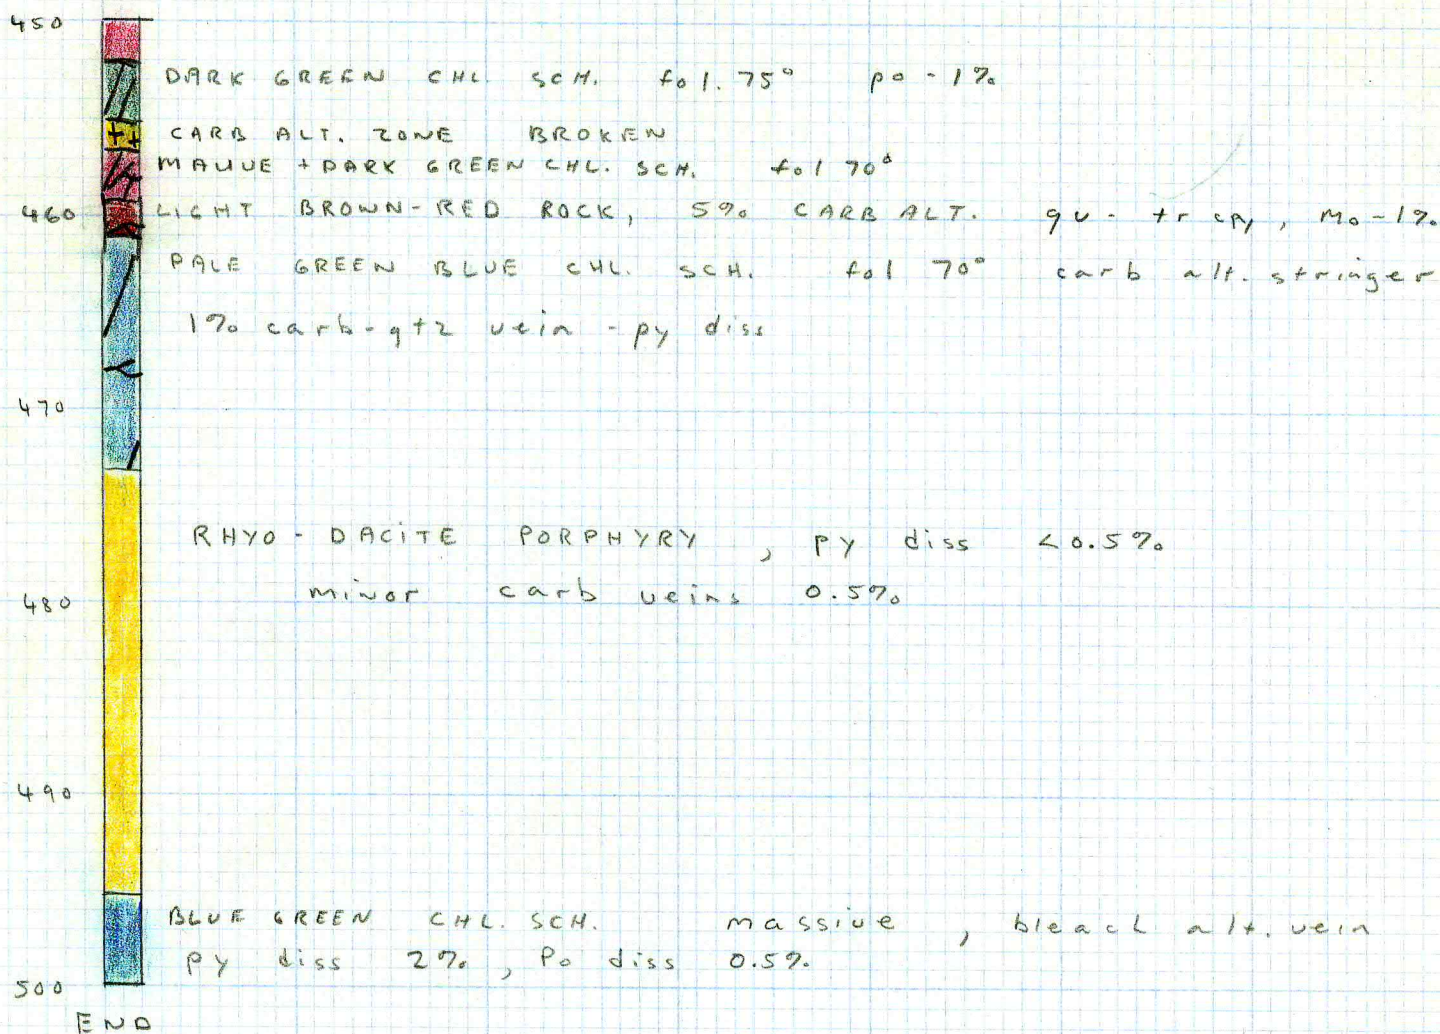 450
DARK GREEN CHL. SCH. fol. 75° po - 1%
CARB ALT. ZONE BROKEN
MAUVE + DARK GREEN CHL. SCH. fol 70°
460 LIGHT BROWN-RED ROCK, 5% CARB ALT. qv - tr cpy, Mo - 1%
PALE GREEN BLUE CHL. SCH. fol 70° carb alt. stringer
1% carb-qtz vein - py diss
470
RHYO - DACITE PORPHYRY, py diss <0.5%
480 minor carb veins 0.5%
490
BLUE GREEN CHL. SCH. massive, bleach alt. vein
py diss 2%, Po diss 0.5%
500
END